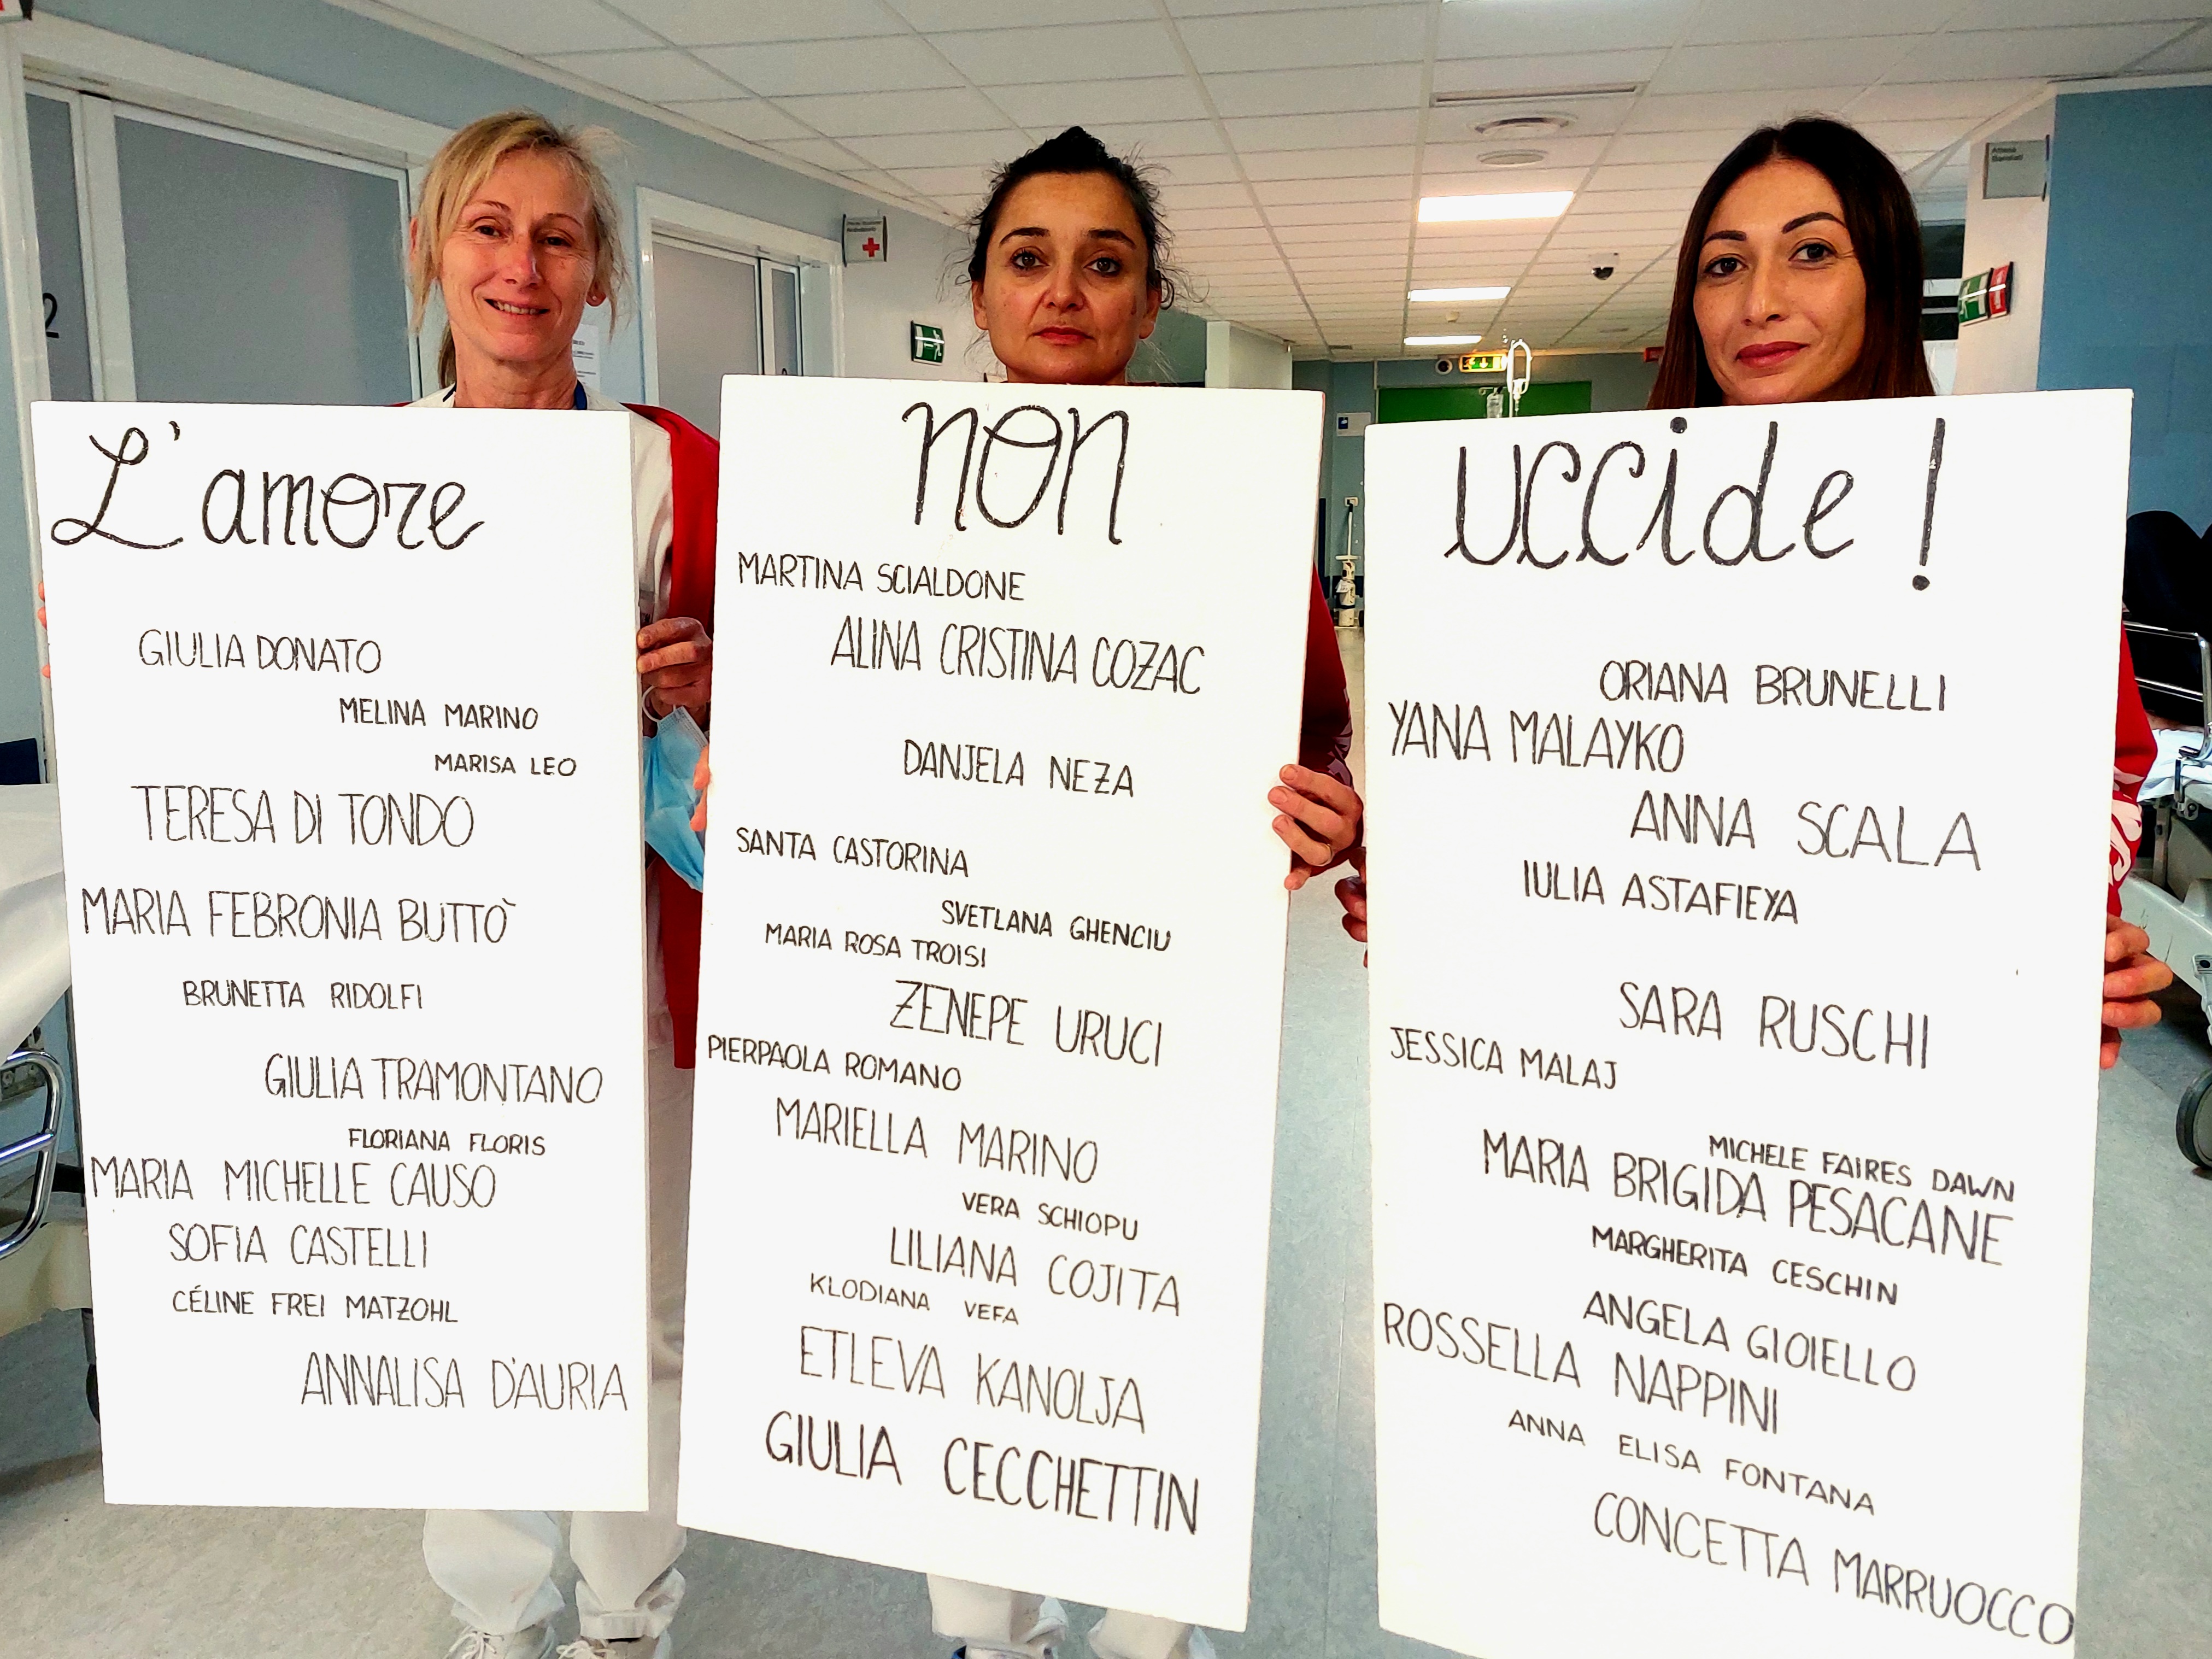 L'amore
GIULIA DONATO
MELINA MARINO
MARISA LEO
TERESA DI TONDO
MARIA FEBRONIA BUTTÒ
BRUNETTA RIDOLFI
GIULIA TRAMONTANO
FLORIANA FLORIS
MARIA MICHELLE CAUSO
SOFIA CASTELLI
CÉLINE FREI MATZOHL
ANNALISA D'AURIA
non
MARTINA SCIALDONE
ALINA CRISTINA COZAC
DANJELA NEZA
SANTA CASTORINA
SVETLANA GHENCIU
MARIA ROSA TROISI
ZENEPE URUCI
PIERPAOLA ROMANO
MARIELLA MARINO
VERA SCHIOPU
LILIANA COJITA
KLODIANA VEFA
ETLEVA KANOLJA
GIULIA CECCHETTIN
uccide!
ORIANA BRUNELLI
YANA MALAYKO
ANNA SCALA
IULIA ASTAFIEYA
SARA RUSCHI
JESSICA MALAJ
MICHELE FAIRES DAWN
MARIA BRIGIDA PESACANE
MARGHERITA CESCHIN
ANGELA GIOIELLO
ROSSELLA NAPPINI
ANNA ELISA FONTANA
CONCETTA MARRUOCCO
2
Attesa
Barellati